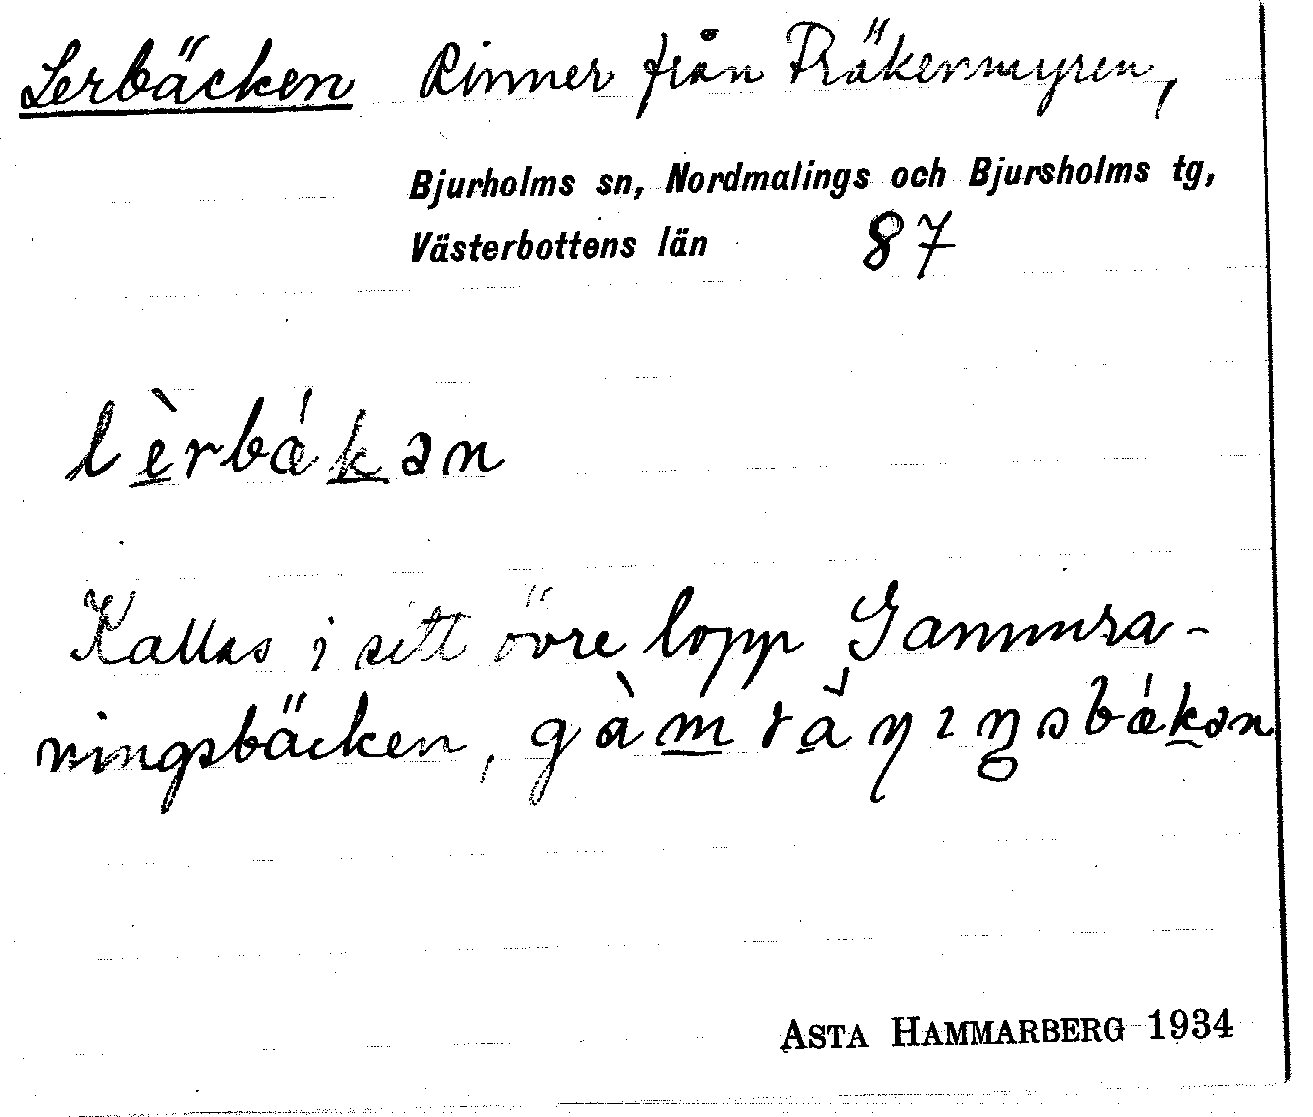 Lerbäcken Rinner från Fräkenmyren,
Bjurholms sn, Nordmalings och Bjursholms tg,
Västerbottens län 87
lèrbǽkən
Kallas i sitt övre lopp Gammra-
ningsbäcken, gàmråŋıŋsbǽkən
ASTA HAMMARBERG 1934